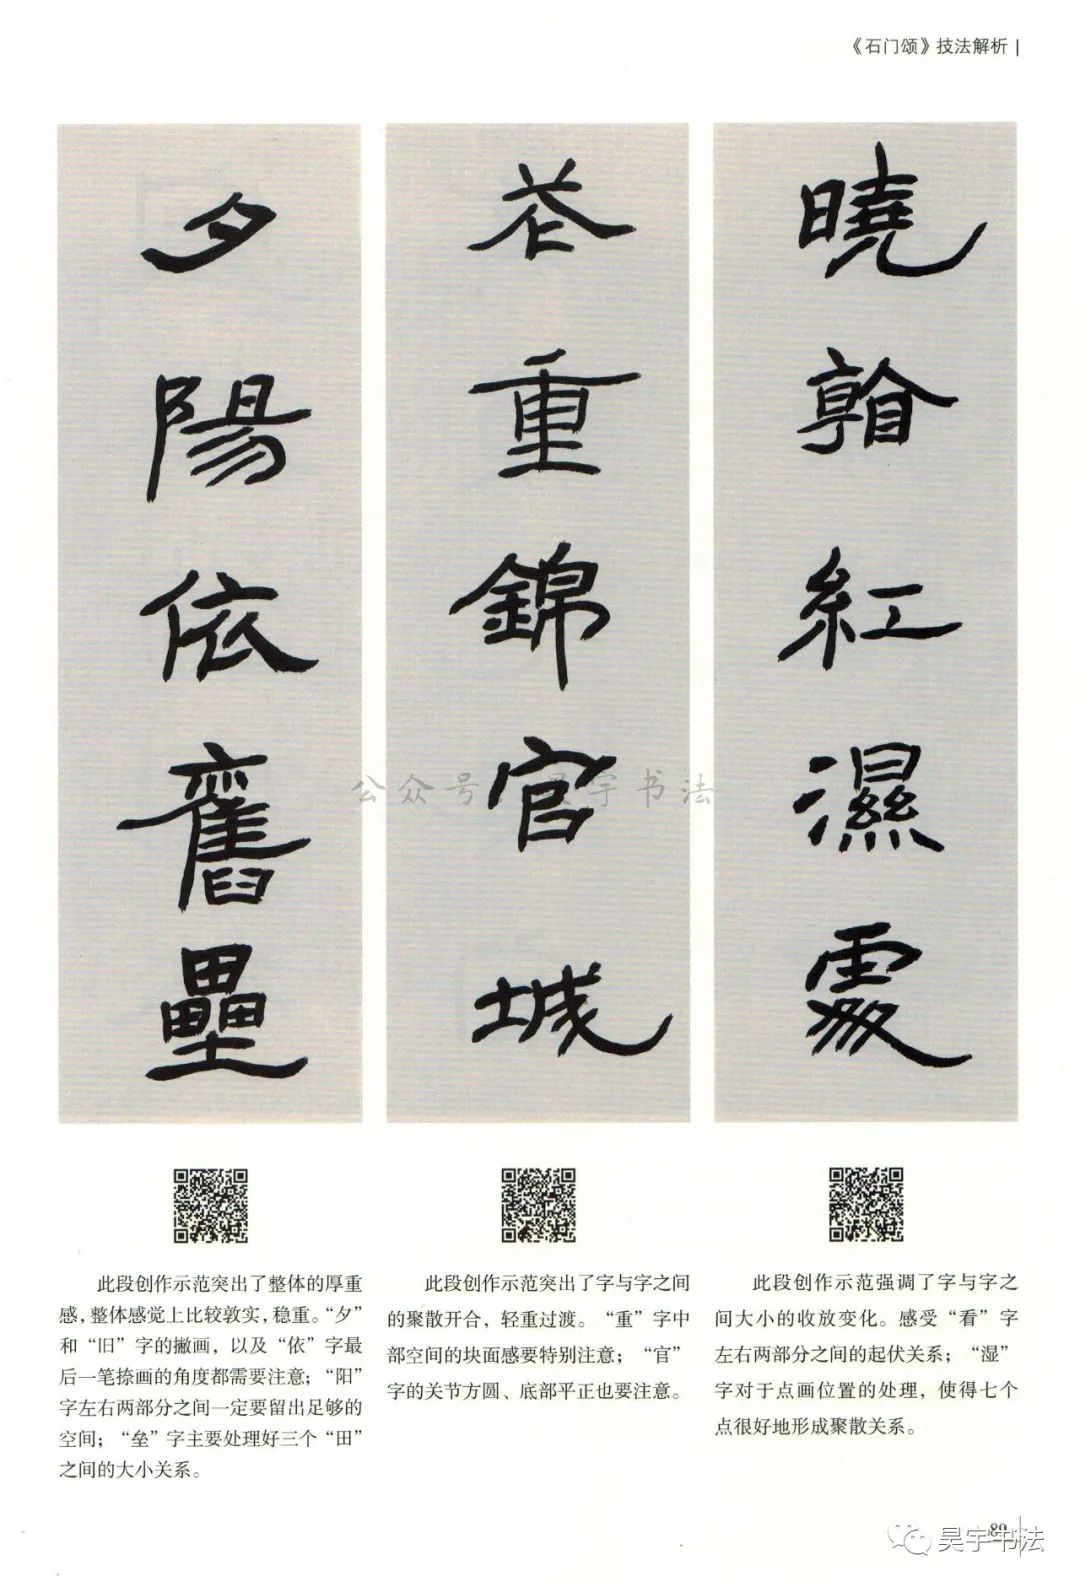 《石门颂》技法解析
曉看紅濕處
花重錦官城
夕陽依舊壘
公众号：昊宇书法
此段创作示范强调了字与字之
间大小的收放变化。感受“看”字
左右两部分之间的起伏关系；“湿”
字对于点画位置的处理，使得七个
点很好地形成聚散关系。
此段创作示范突出了字与字之间
的聚散开合，轻重过渡。“重”字中
部空间的块面感要特别注意；“官”
字的关节方圆、底部平正也要注意。
此段创作示范突出了整体的厚重
感，整体感觉上比较敦实，稳重。“夕”
和“旧”字的撇画，以及“依”字最
后一笔捺画的角度都需要注意；“阳”
字左右两部分之间一定要留出足够的
空间；“垒”字主要处理好三个“田”
之间的大小关系。
89
昊宇书法